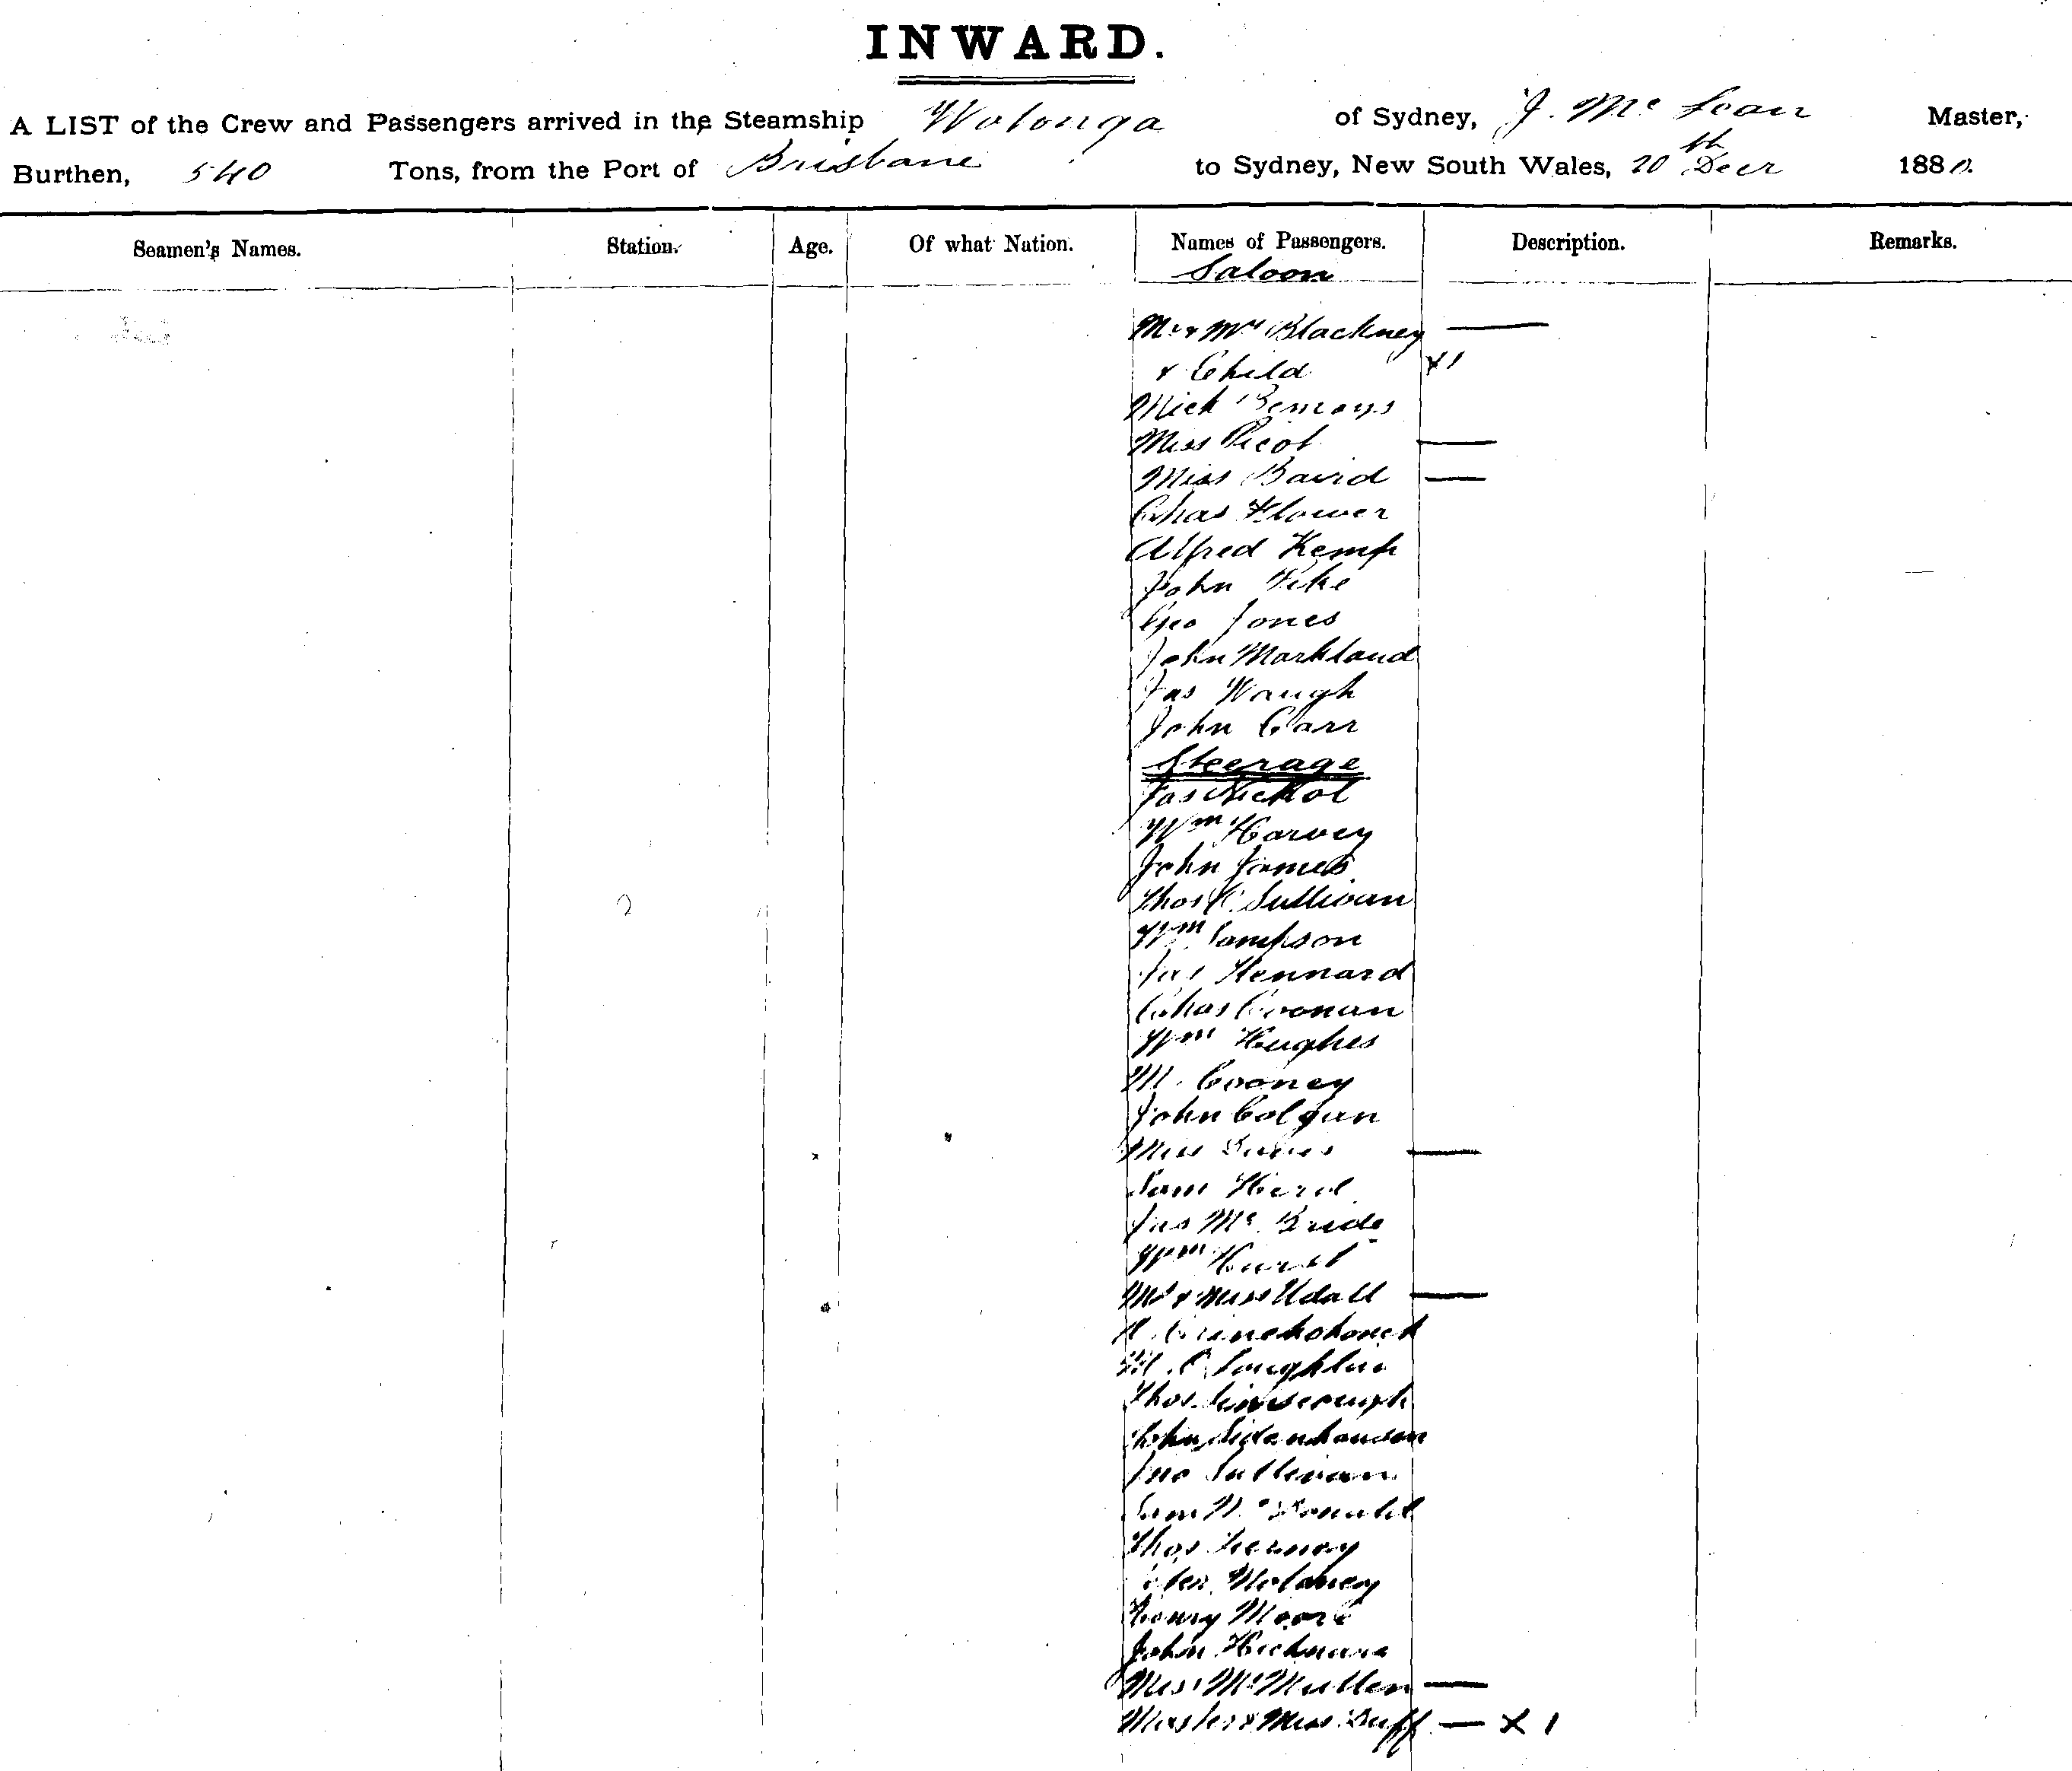 INWARD.
A LIST of the Crew and Passengers arrived in the Steamship Wotonga of Sydney, J. Mc Lean Master,
Burthen, 540 Tons, from the Port of Brisbane to Sydney, New South Wales, 20th Decr 1880.
Seamen's Names. Station. Age. Of what Nation. Names of Passengers. Description. Remarks.
Saloon
Mr & Mrs Blackney —
& Child x1
Mick
Miss Picot —
Miss Baird —
Chas Flower
Alfred Kemp
John
Geo Jones
John Markland
Jas Waugh
John Carr
Steerage
Jas Nichol
Wm Harvey
John James
Thos O'Sullivan
Wm Sampson
Jas Kennard
Chas Coonan
Wm Hughes
M. Cooney
John Colgan
Miss —
Sam Herd
Jas Mc Bride
Wm Hurst
Mrs & Miss Udall —
M. O'Loughlin
Thos
John
Jno Sullivan
Sam Mc Donald
Thos Tierney
Moloney
Henry Moore
John Hickman
Miss McMullen —
Master & Miss Duff — x 1